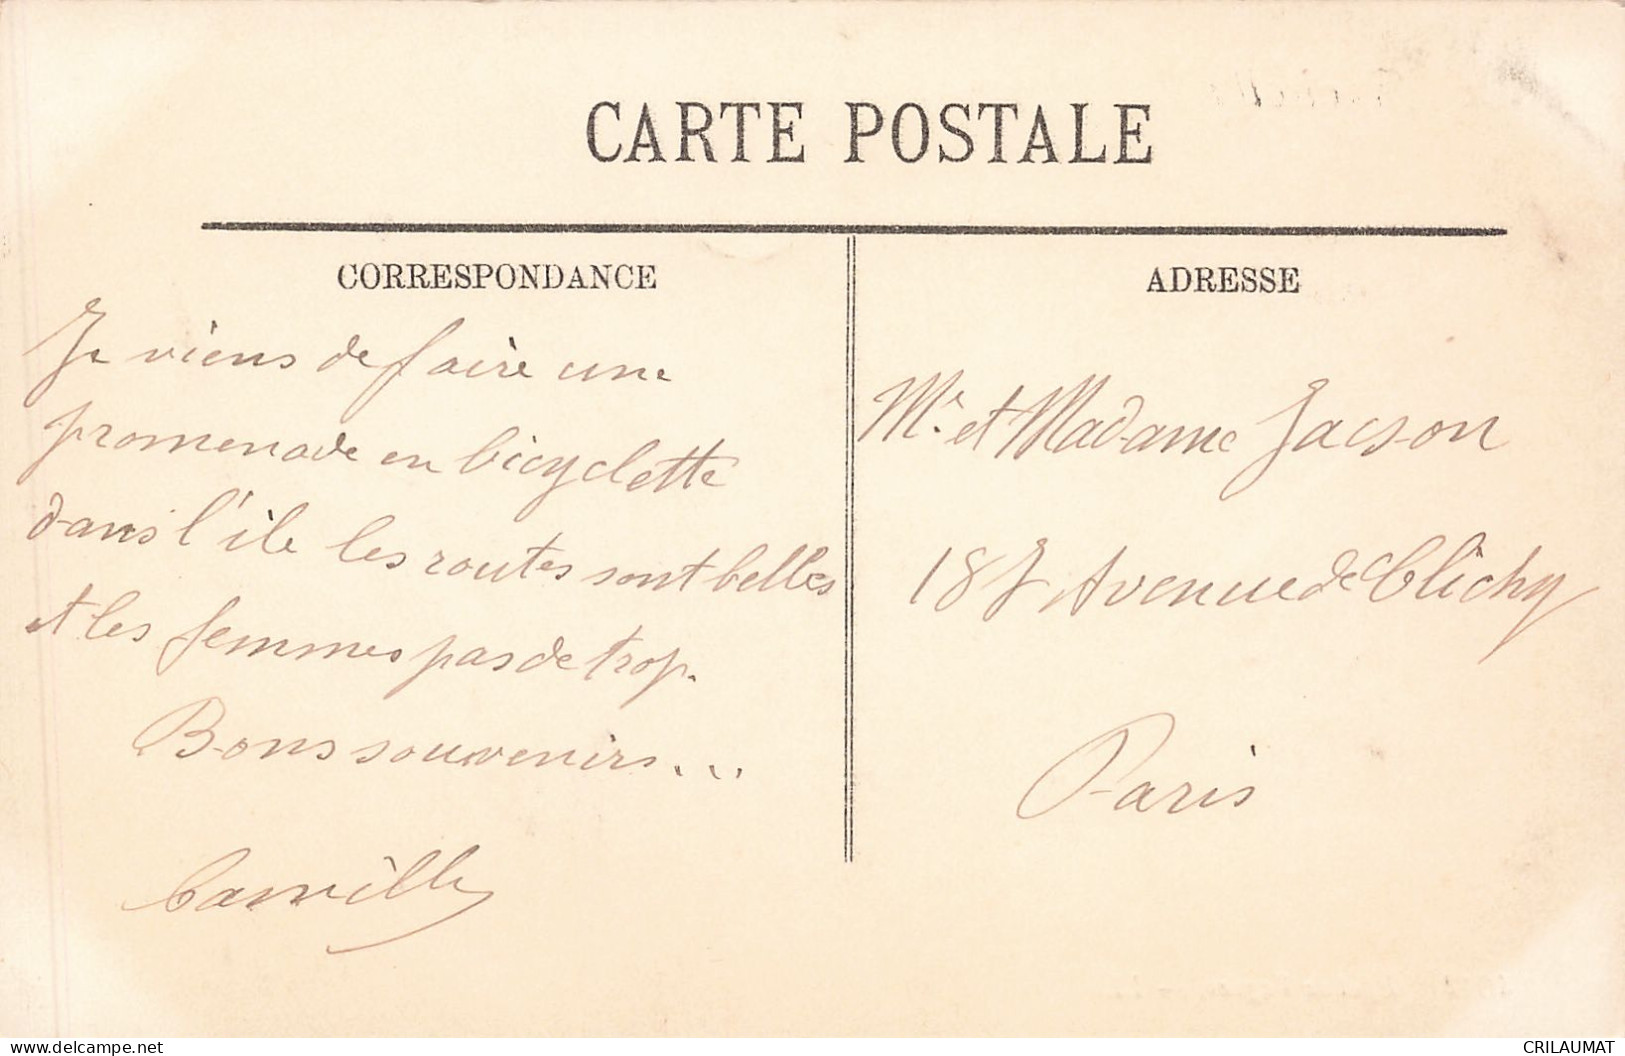 CARTE POSTALE
CORRESPONDANCE
Je viens de faire une
promenade en bicyclette
dans l'ile les routes sont belles
et les femmes pas de trop.
Bons souvenirs...
Camille
ADRESSE
Mr. et Madame Jacson
187 Avenue de Clichy
Paris
delcampe.net
CRILAUMAT